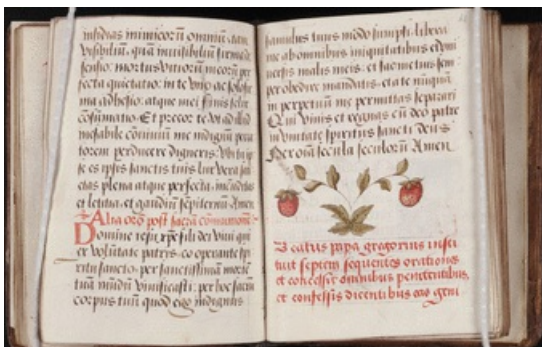 insidias inimicorū omniū, tam
visibiliū, quā invisibiliū firma de
fensio: motus vitiorū meorū per
fecta quietatio: in te vno ac solo fir
ma adhesio: atque mei finis felix
cōsumatio. Et precor te vt ad illud
inefabile cōviviū me indignū pecca
torem perducere digneris: vbi tu ip
se es ipsis sanctis tuis lux vera, saci
etas plena atque perfecta, iucūditas
et letitia, et gaudiū sempiternū. Amen
Alia orō post sacrā cōmunionē
Domine iesu xpē fili dei vivi qui
ex volūtate patris, co operante spi
ritu sancto: per sanctissimā mortē
tuā mūdū vivificasti: per hoc sacrū
corpus tuū quod ego indignus
famulus tuus modo sumpsi: libera
me ab omnibus iniquitatibus et vni
versis malis meis: et fac me tuis sem
per obedire mandatis: et a te nūquā
in perpetuū me permittas separari
Qui vivis et regnas cū deo patre
in vnitate spiritus sancti deus
Per oīa secula seculorū Amen.
Beatus papa gregorius insti
tuit septem sequentes orationes
et concessit omnibus penitentibus,
et confessis dicentibus eas geni